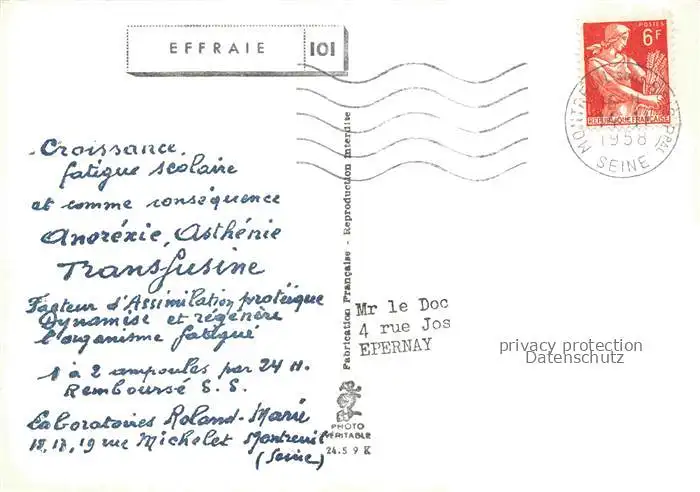 EFFRAIE 101
POSTES
6F
REPUBLIQUE FRANÇAISE
1958
SEINE
Croissance,
fatigue scolaire
et comme conséquence
Anoréxie, Asthénie
Transfusine
Facteur d'Assimilation protéïque
Dynamise et régénère
l'organisme fatigué
1 à 2 ampoules par 24 H.
Remboursé S.S.
Laboratoires Roland-Marie
19 rue Michelet Montreuil
(Seine)
Fabrication Française - Reproduction interdite
Mr le Doc
4 rue Jos
EPERNAY
privacy protection
Datenschutz
PHOTO
VERITABLE
24.5 9 K